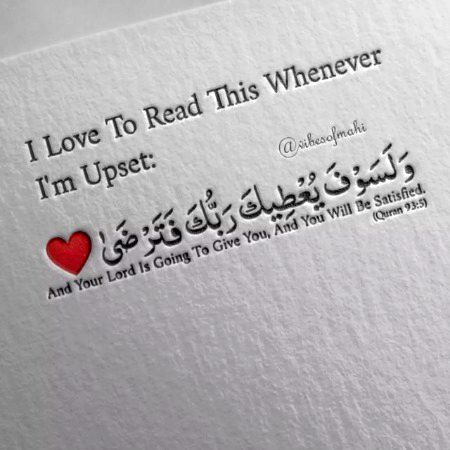 I Love To Read This Whenever
I'm Upset:
@vibesofmahi
وَلَسَوْفَ يُعْطِيكَ رَبُّكَ فَتَرْضَىٰ
And Your Lord Is Going To Give You, And You Will Be Satisfied.
(Quran 93:5)